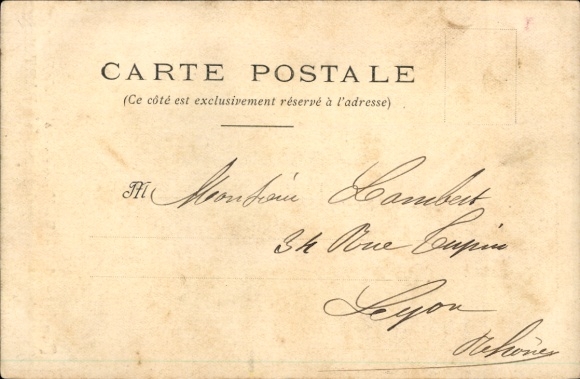 CARTE POSTALE
(Ce côté est exclusivement réservé à l'adresse)
M Monsieur Lambert
34 Rue Tupin
Lyon
Rhône